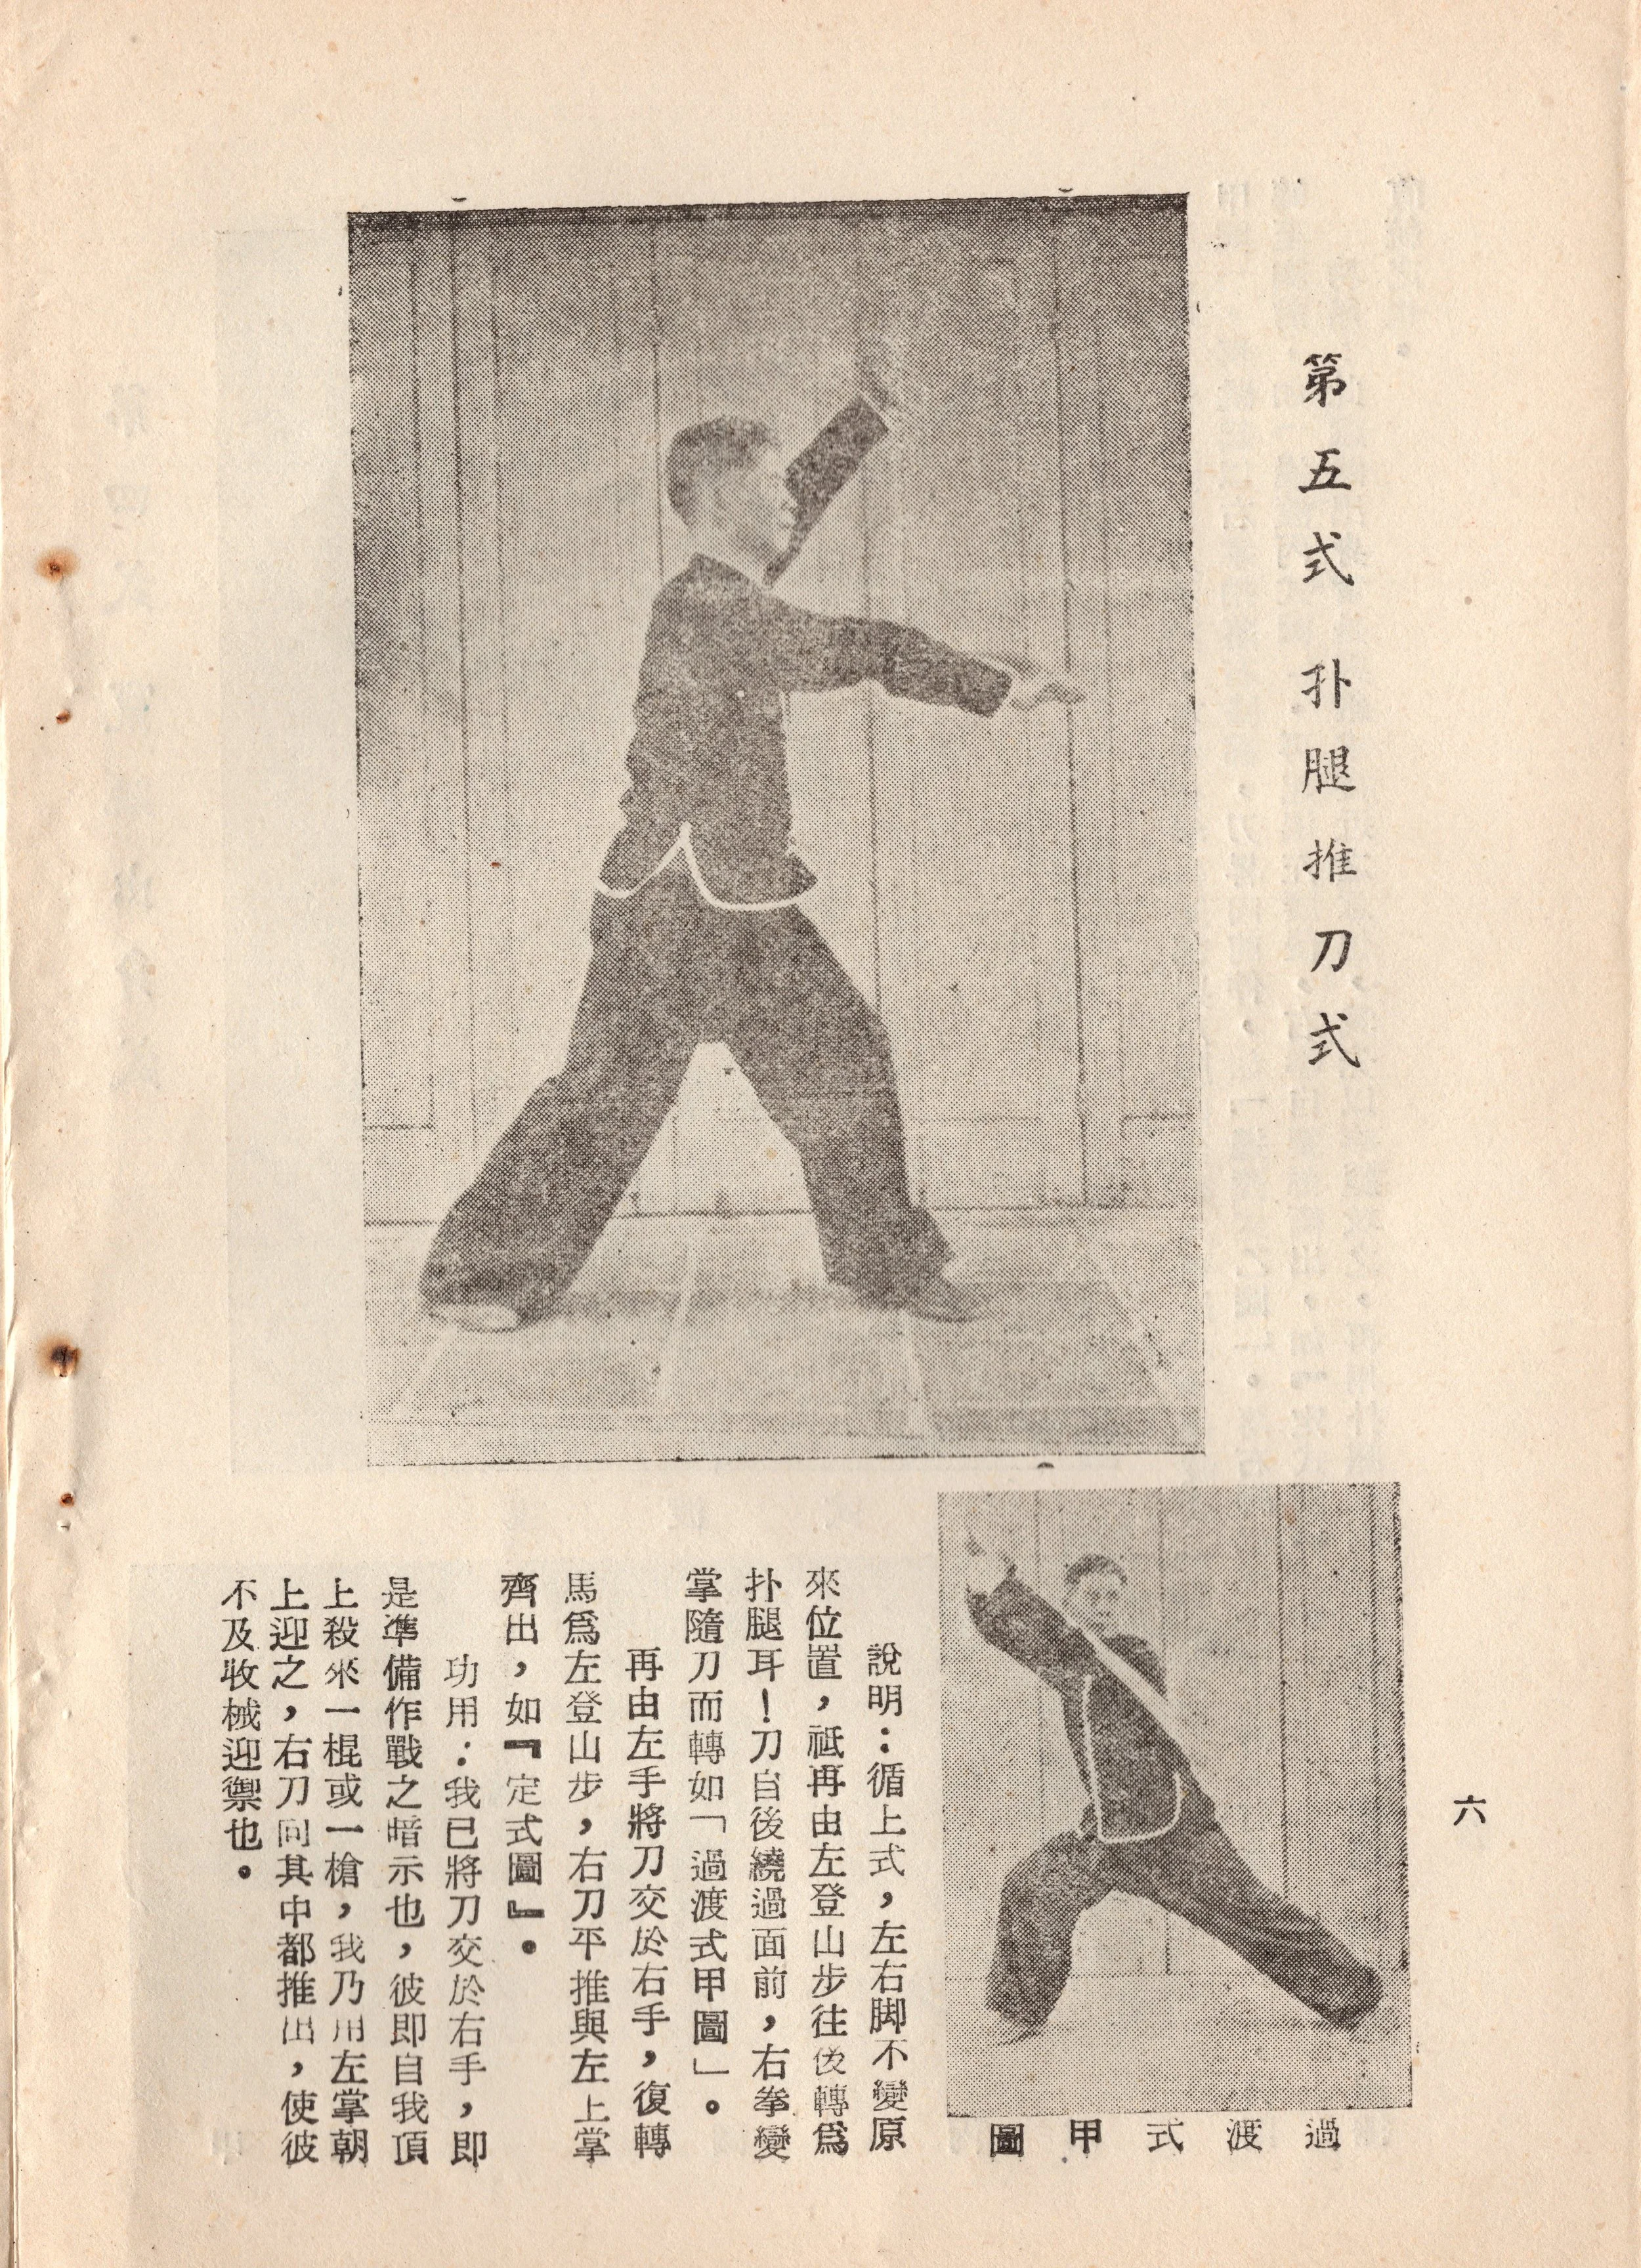 第五式 扑腿推刀式
過渡式甲圖
說明：循上式，左右脚不變原
來位置，祗再由左登山步往後轉爲
扑腿耳！刀自後繞過面前，右拳變
掌隨刀而轉如「過渡式甲圖」。
再由左手將刀交於右手，復轉
馬爲左登山步，右刀平推與左上掌
齊出，如『定式圖』。
功用：我已將刀交於右手，即
是準備作戰之暗示也，彼即自我頂
上殺來一棍或一槍，我乃用左掌朝
上迎之，右刀向其中都推出，使彼
不及收械迎禦也。
六